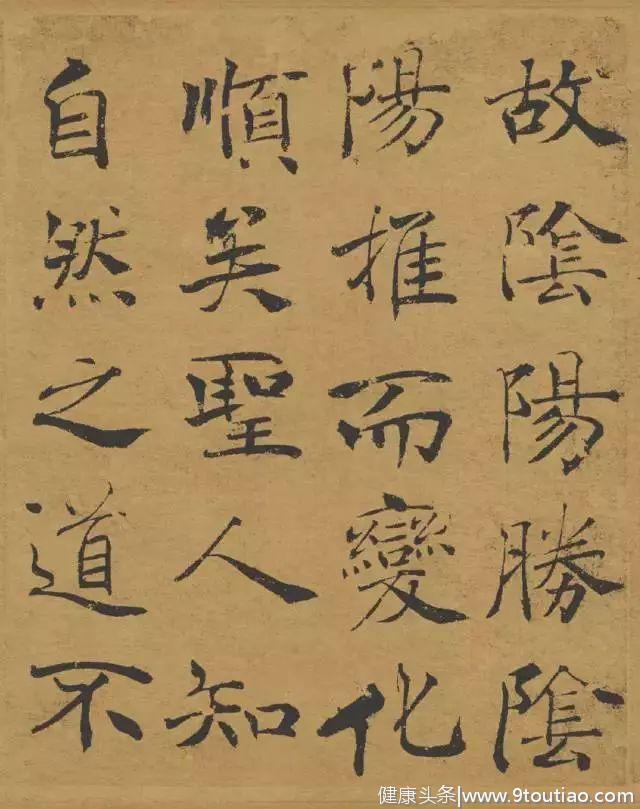 故陰陽勝陰
陽推而變化
順矣聖人知
自然之道不
健康头条|www.9toutiao.com